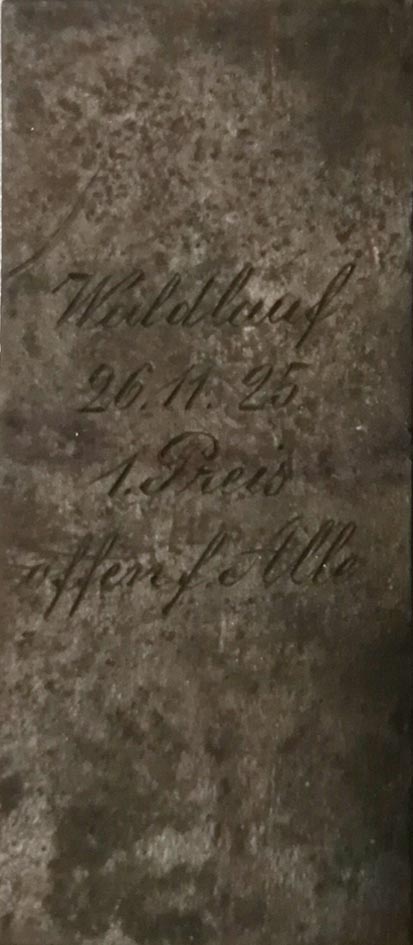 Waldlauf
26.11.25
1. Preis
offen f. Alle